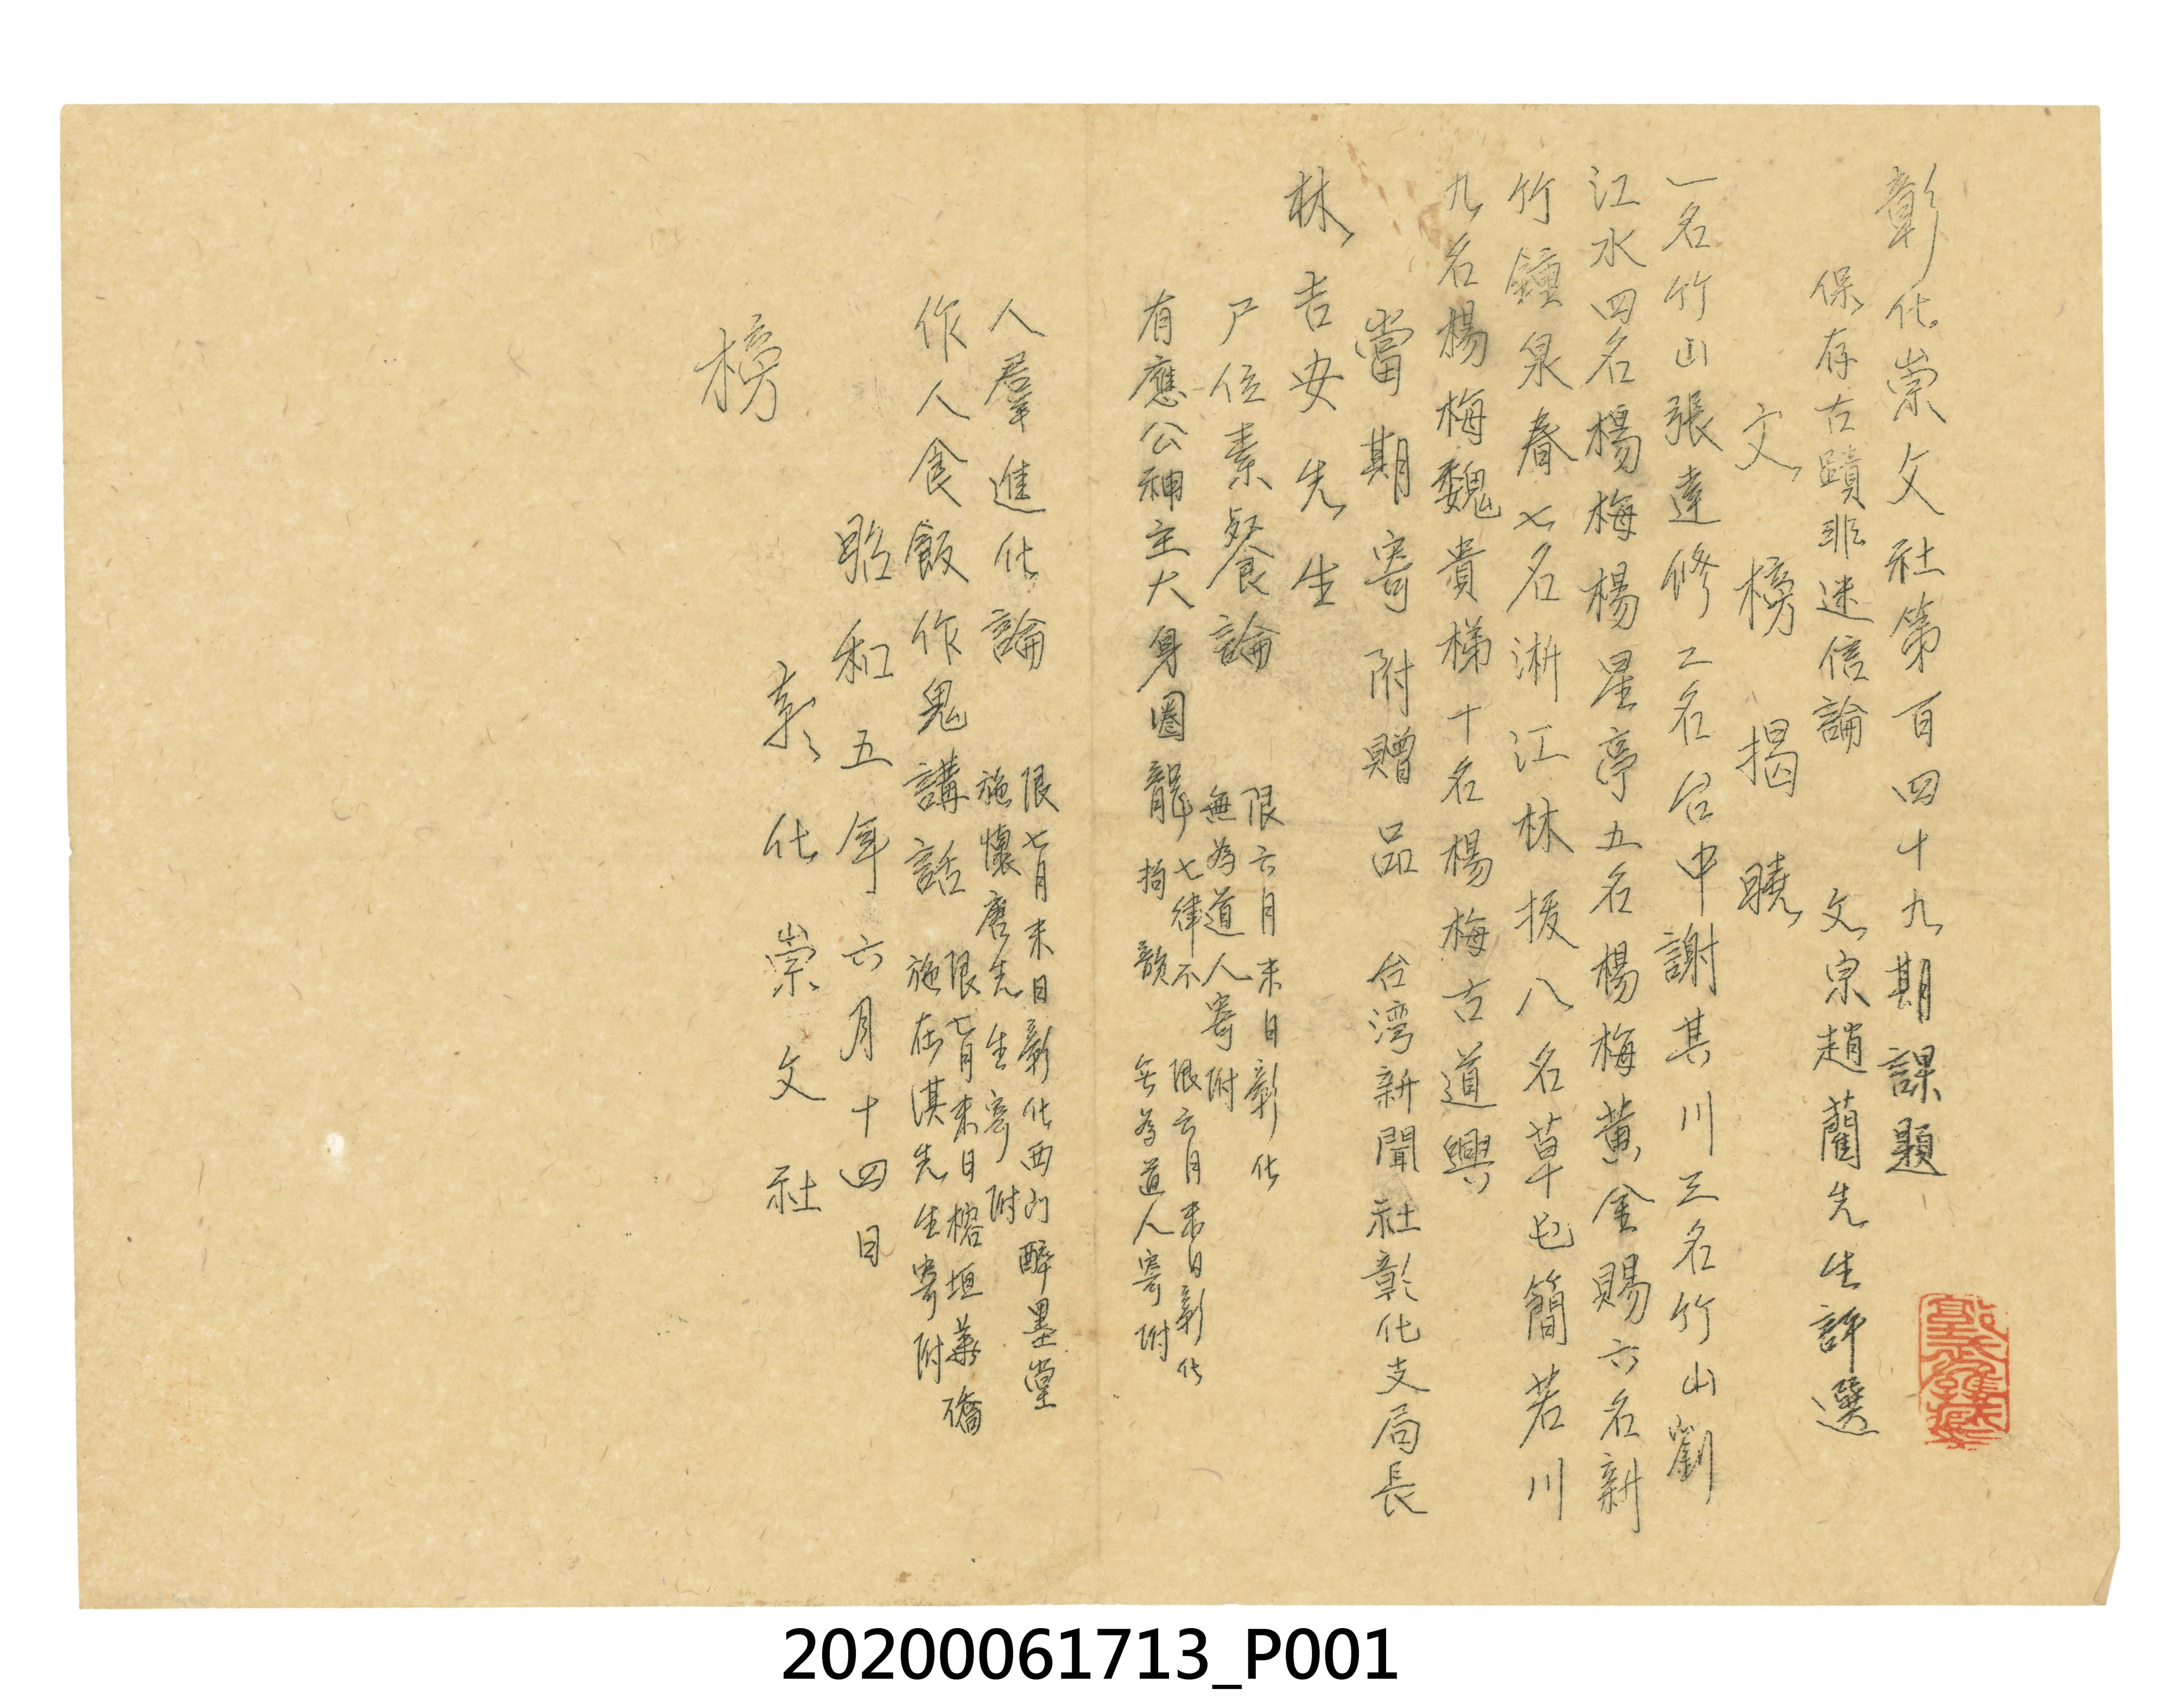 彰化崇文社第百四十九期課題
保存古蹟非迷信論　文宗趙藺先生評選
文榜揭曉
一名竹山張達修二名台中謝其川三名竹山劉
江水四名楊梅楊星亭五名楊梅黃金賜六名新
竹鐘泉春七名淅江林援八名草屯簡若川
九名楊梅魏貴梯十名楊梅古道興
當期寄附贈品　台湾新聞社彰化支局長
林吉安先生
尸位素餐論　限六月末日彰化
無為道人寄附
有應公神主大身圈龍　七律不
拘韻　限六月末日彰化
無為道人寄附
人羣進化論　限七月末日彰化西門醉墨堂
施懷唐先生寄附
作人食飯作鬼講話　限七月末日榕垣葉礄
施在淇先生寄附
昭和五年六月十四日
彰化崇文社
榜
20200061713_P001